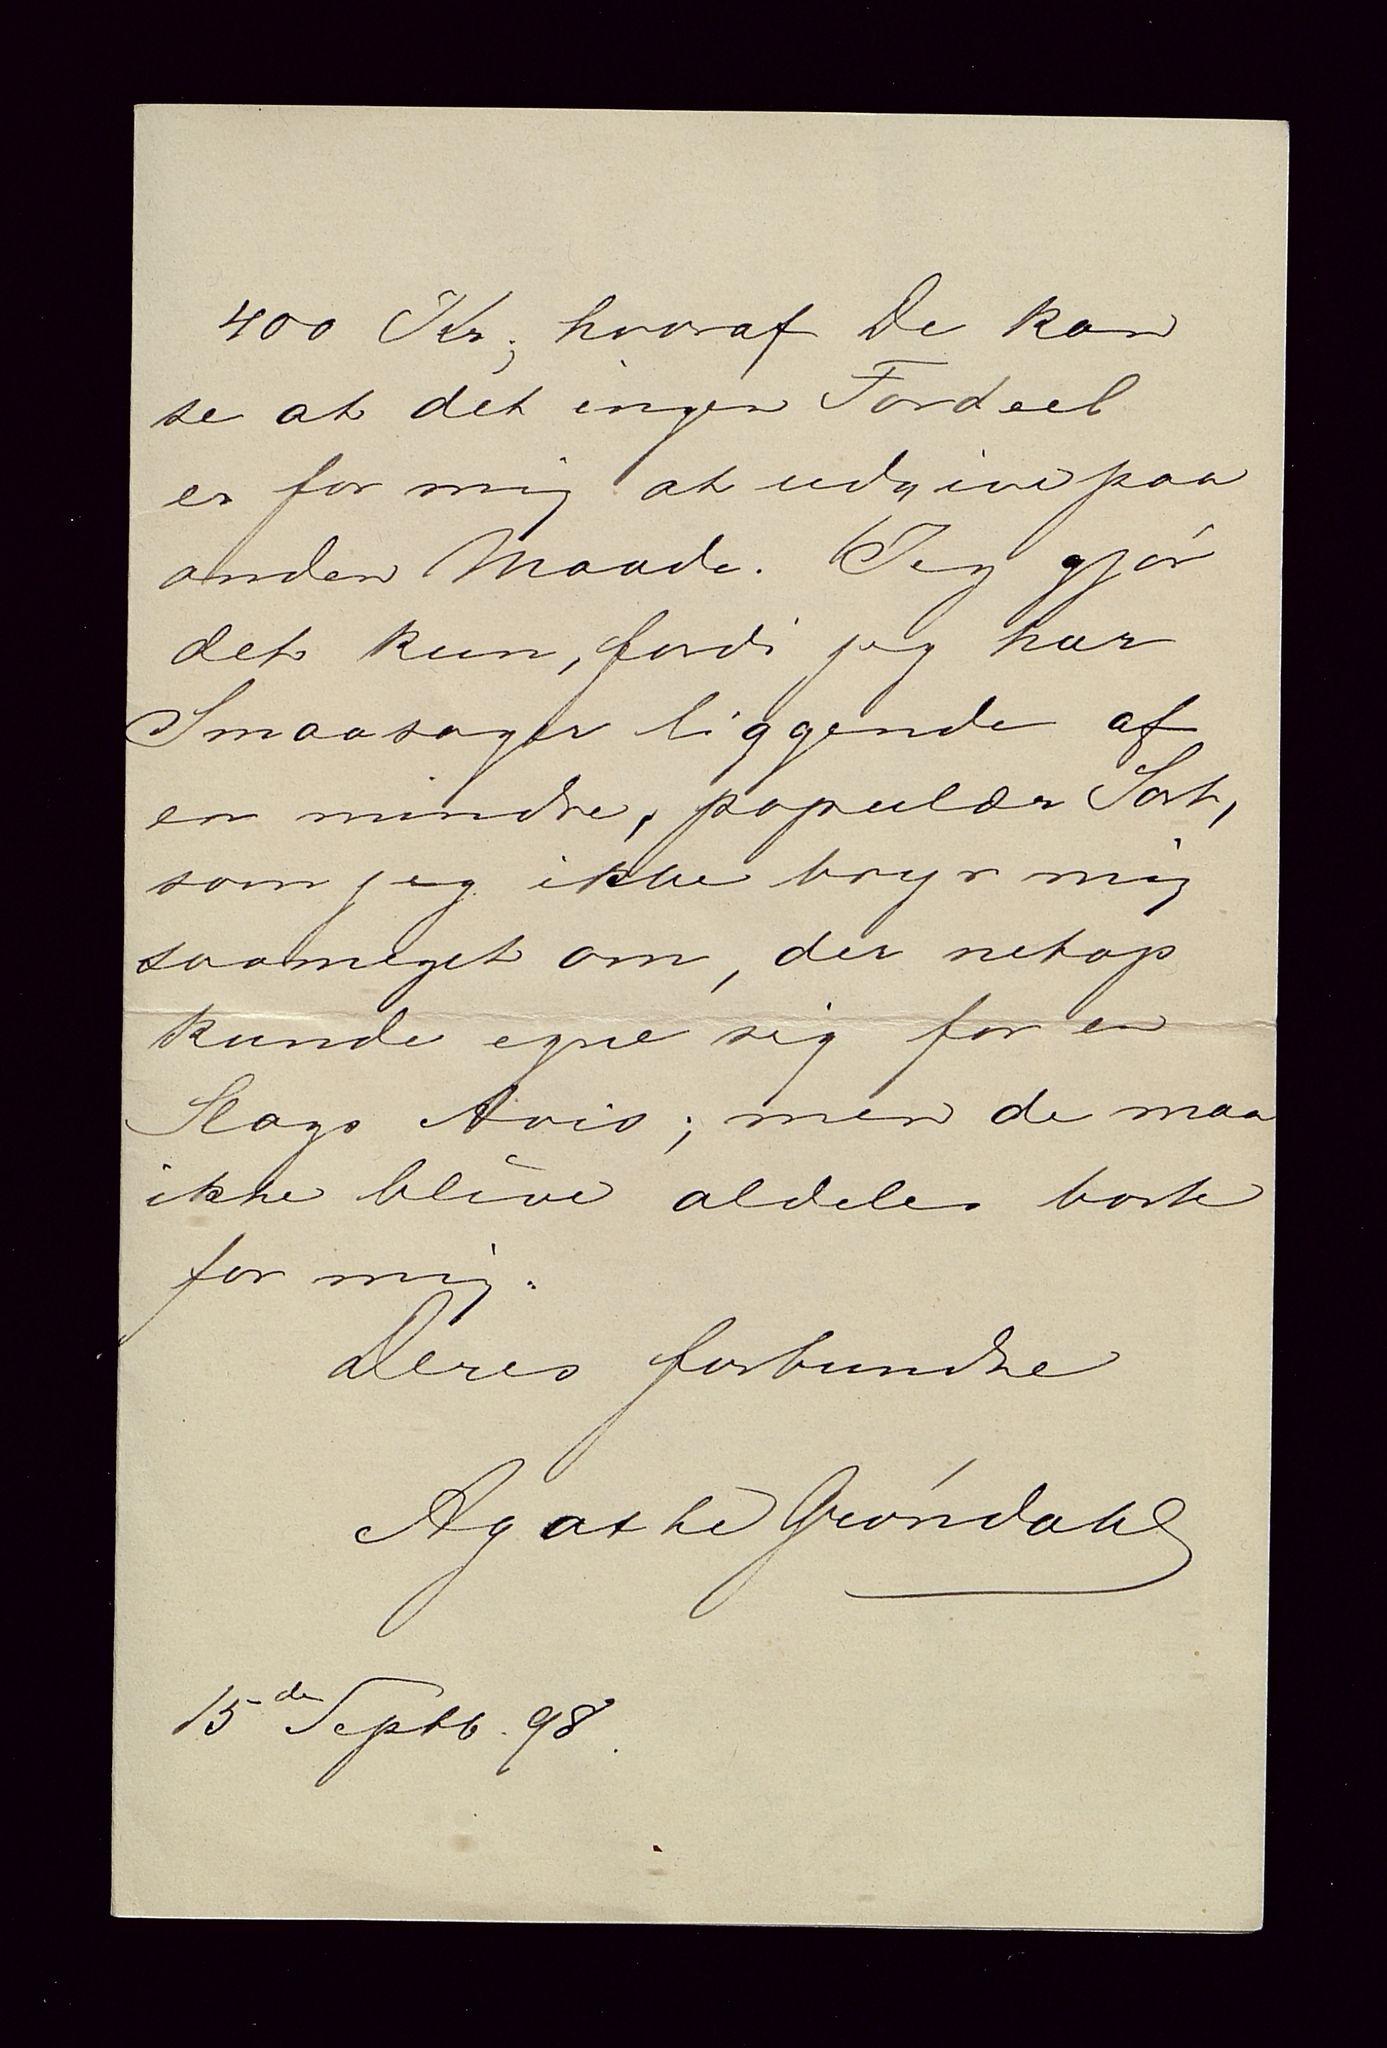 400 Kr., hvoraf De kan
se at det ingen Fordeel
er for mig at udgive paa
anden Maade. Jeg gjør
det kun, fordi jeg har
Smaasager liggende af
en mindre, populær Sort,
som jeg ikke bryr mig
saameget om, der netop
kunde egne sig for en
Slags Avis; men de maa
ikke blive aldeles borte
for mig.
Deres forbundne
Agathe Grøndahl
15de Septb. 98.